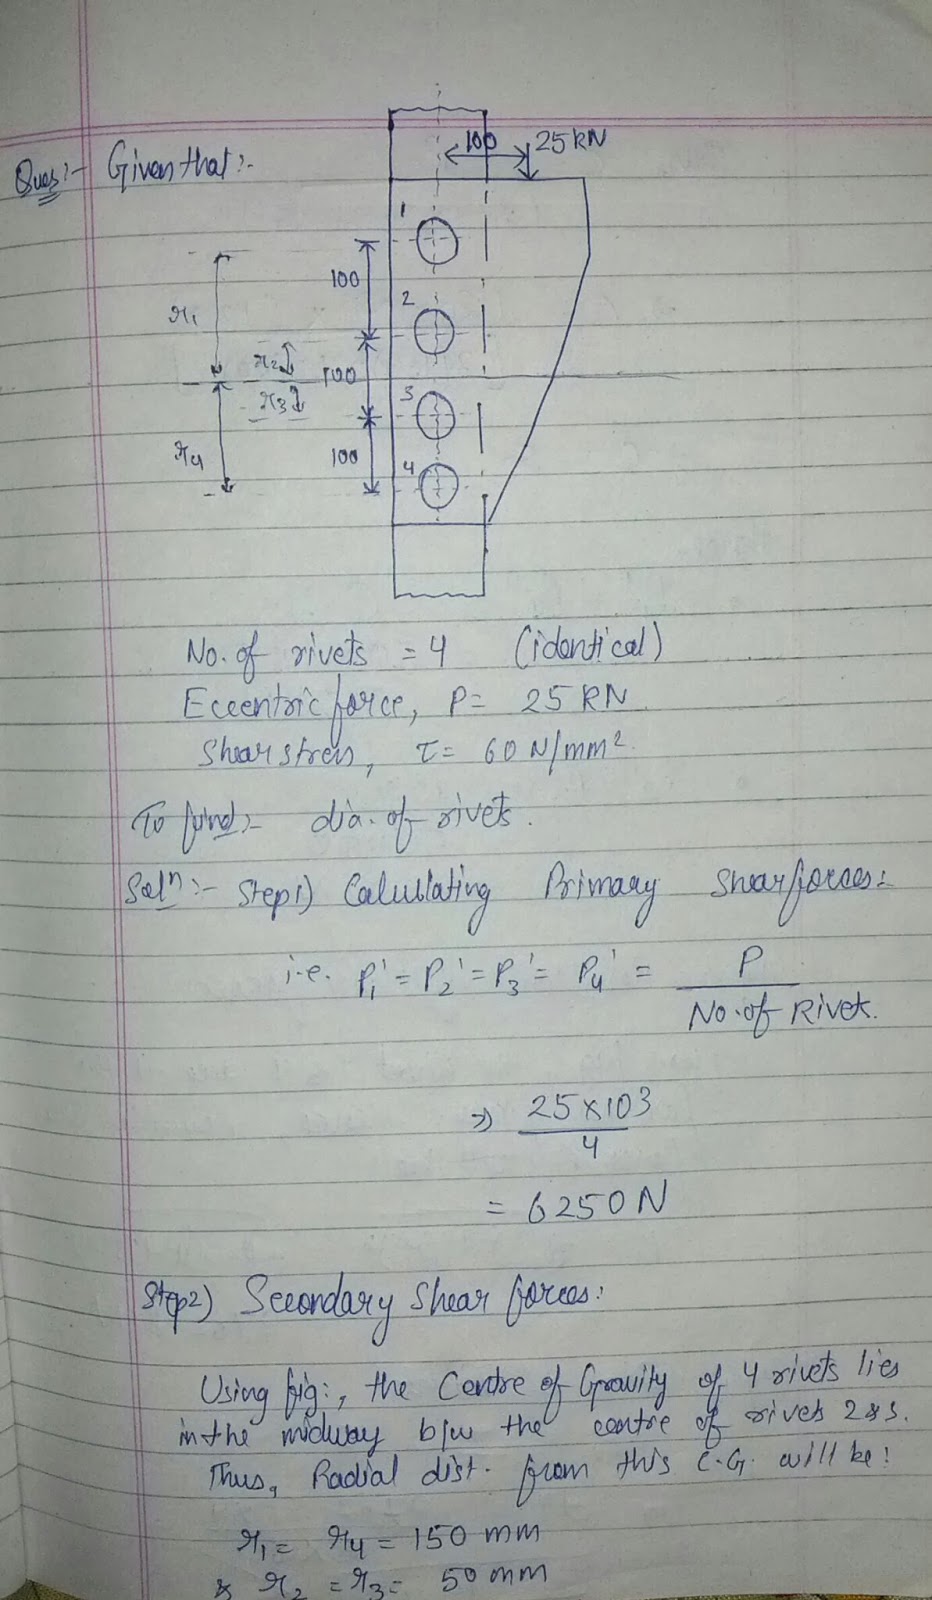 Ques:- Given that:-
100
25 KN
1
100
2
r1
r2
100
r3
3
r4
100
4
No. of rivets = 4 (identical)
Eccentric force, P = 25 KN
Shear stress, τ = 60 N/mm².
To find:- dia. of rivets.
Solⁿ:- Step1) Calculating Primary Shear forces:
i.e. P₁' = P₂' = P₃' = P₄' = P / No. of Rivet.
⇒ 25×103 / 4
= 6250 N
Step2) Secondary Shear forces:
Using fig:, the Centre of Gravity of 4 rivets lies
in the midway b/w the centre of rivets 2 & 3.
Thus, Radial dist. from this C.G. will be:
r₁ = r₄ = 150 mm
& r₂ = r₃ = 50 mm